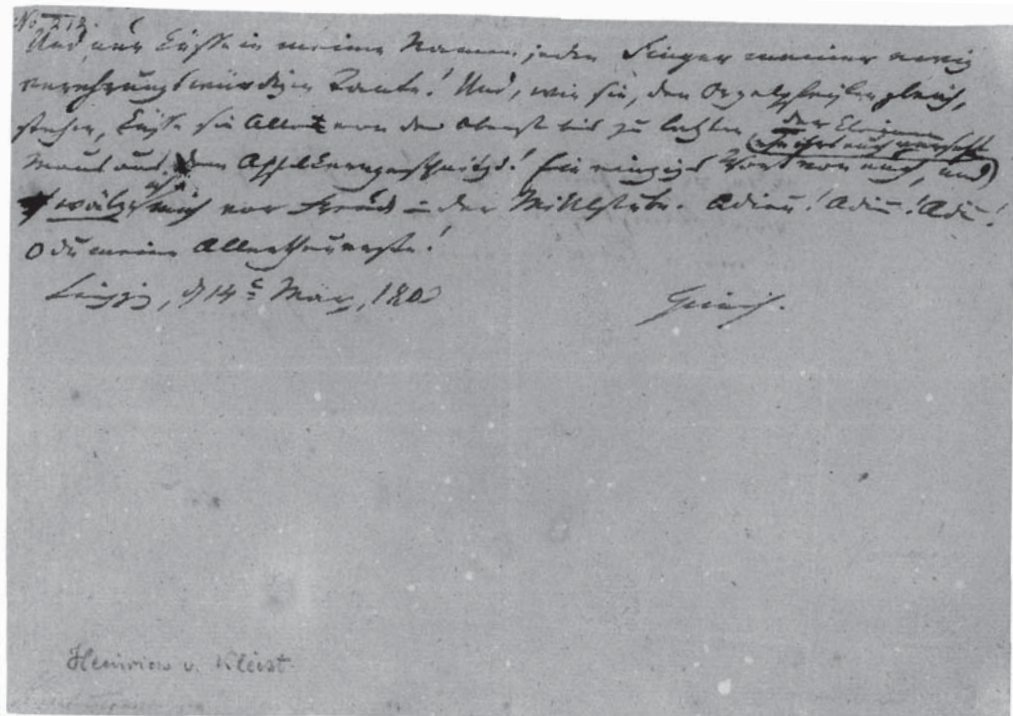 No 212.
Und nun küsse in meinem Namen jeden Finger meiner ewig
verehrungswürdigen Tante! Und, wie sie, den Orgelpfeifen gleich,
stehen, küsse sie Alle von der Obersten bis zur letzten, der kleinen
Maus aus dem Apfelkern geschnitzt! Ein einziges Wort von euch, und
ehe ihrs euch verseht,
wälze ich mich vor Freude in der Mittelstube. Adieu! Adieu! Adieu!
O du meine Allertheuerste!
Leipzig, d 14t März, 1803
Heinrich.
Heinrich v. Kleist